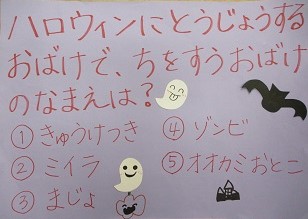 ハロウィンにとうじょうする
おばけで、ちをすうおばけ
のなまえは？
①きゅうけつき
②ミイラ
③まじょ
④ゾンビ
⑤オオカミおとこ